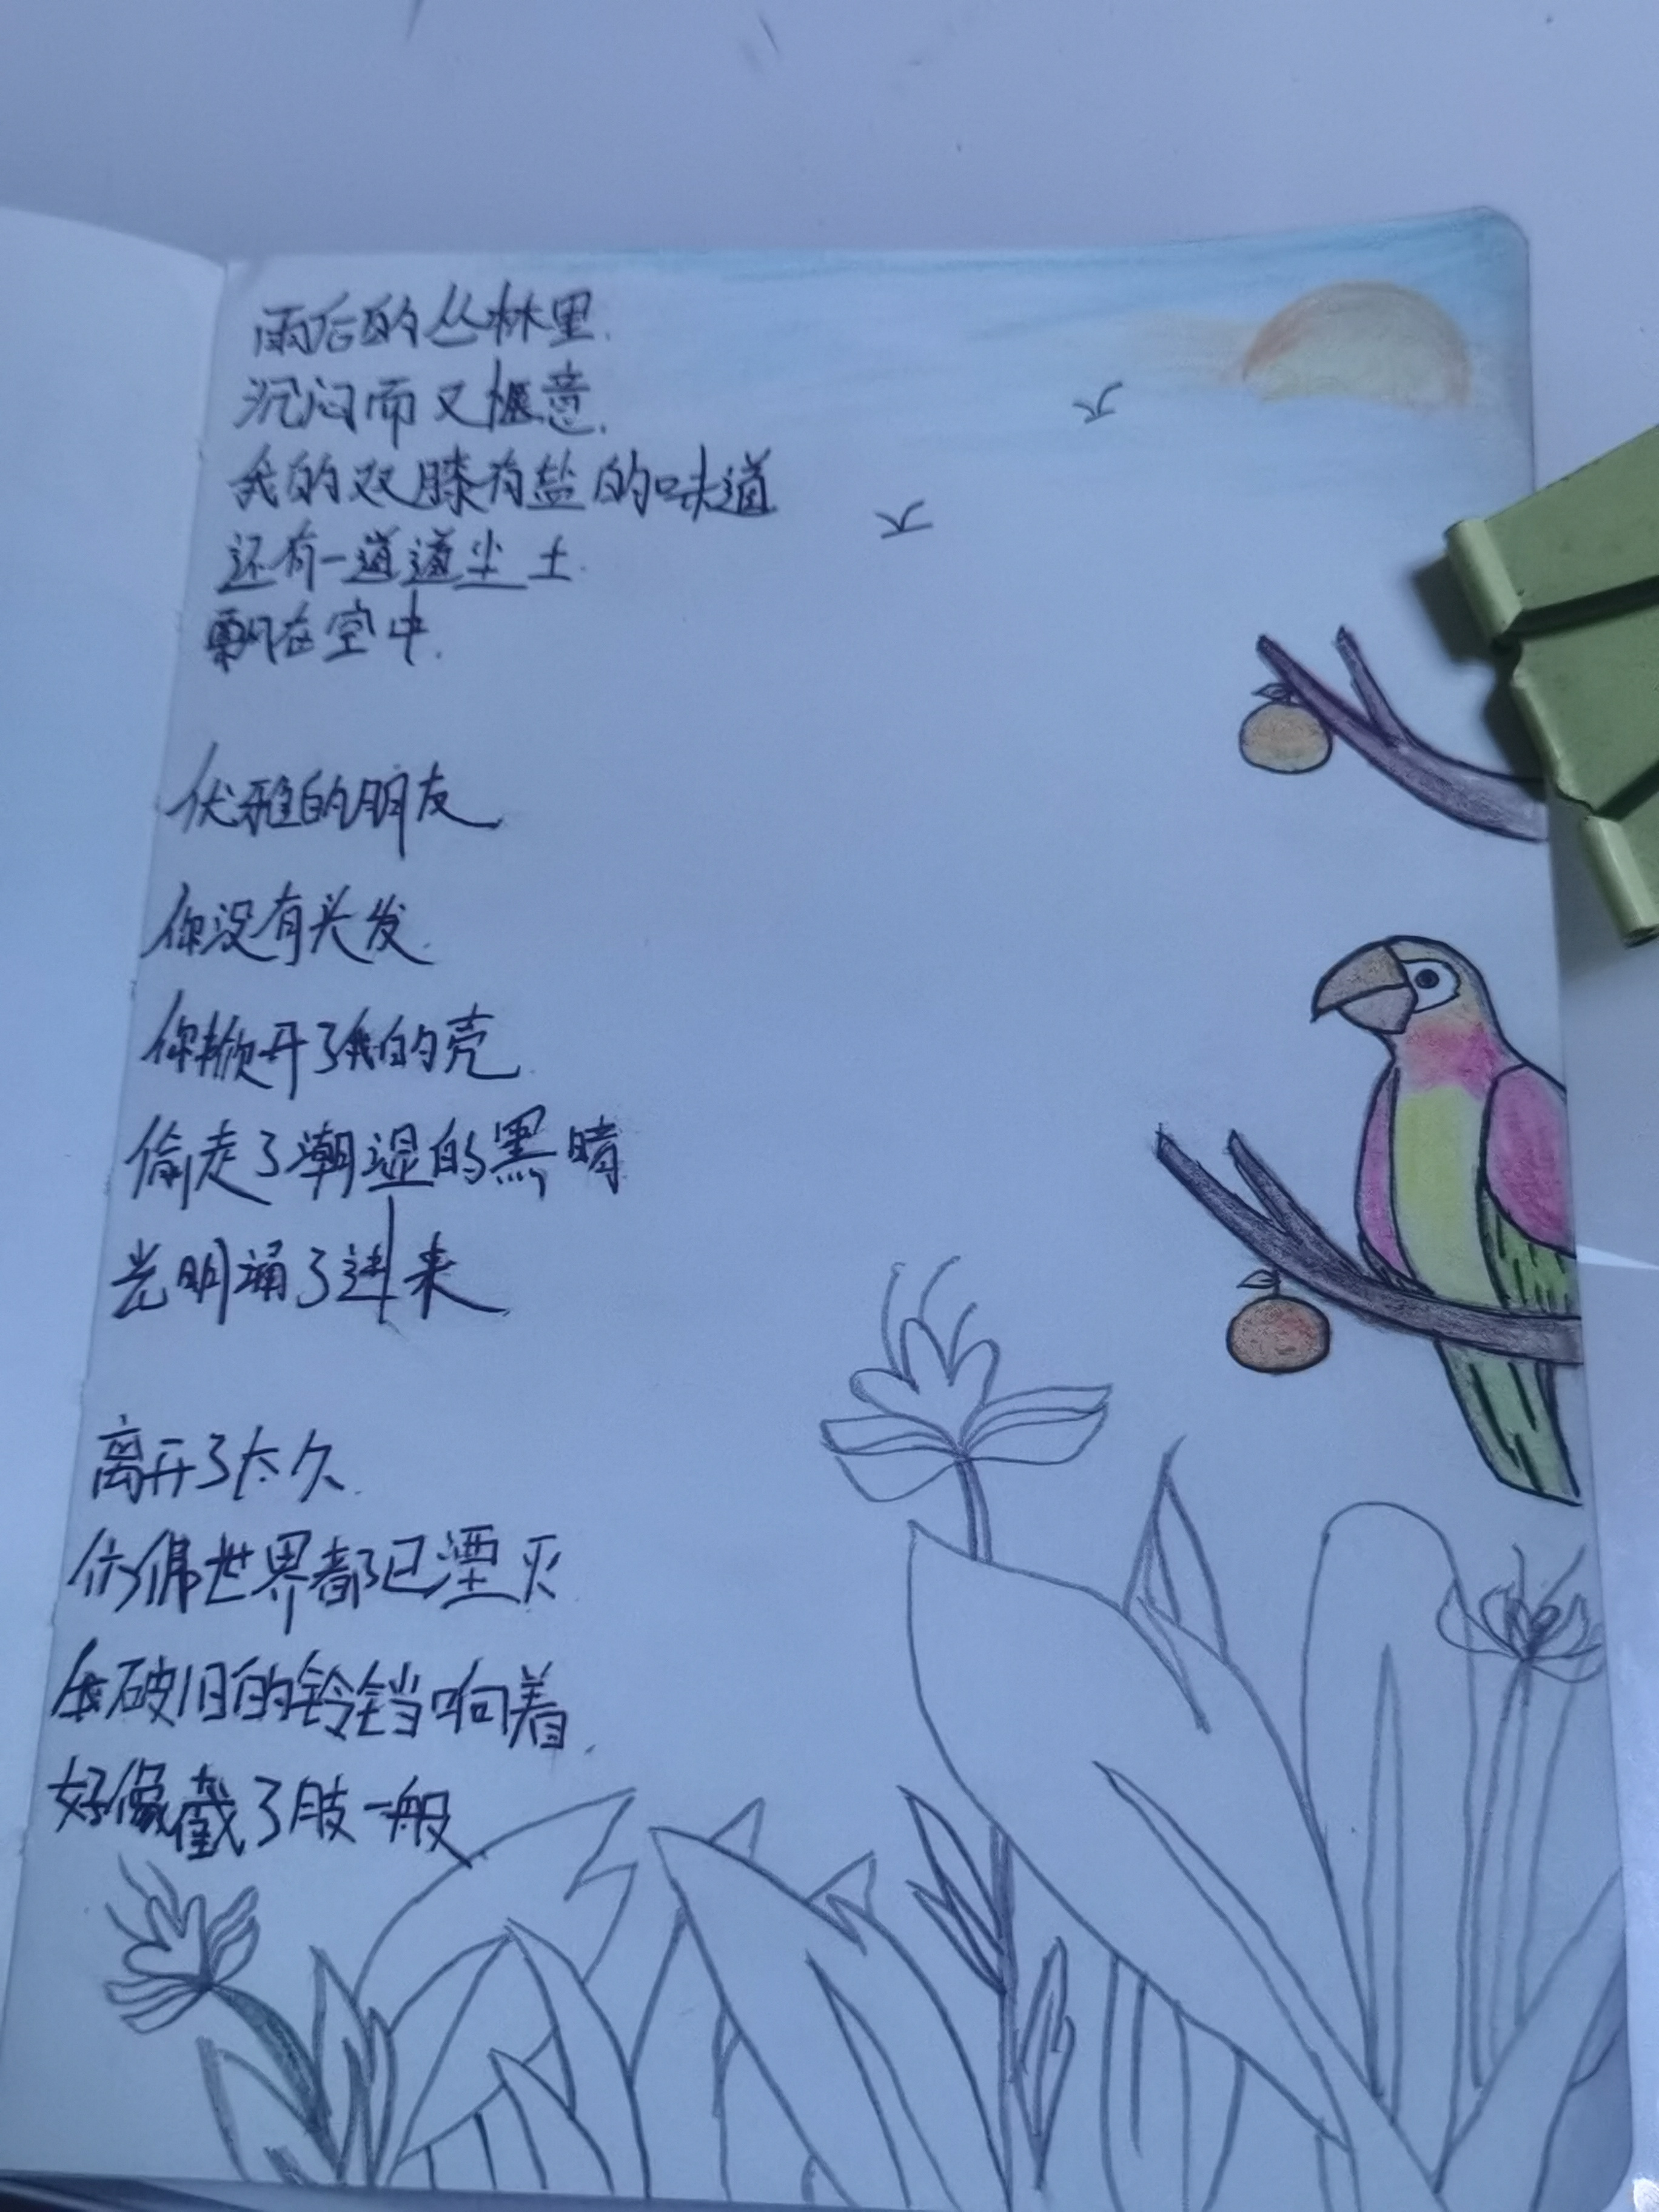 雨后的丛林里.
沉闷而又惬意.
我的双膝有盐的味道
还有一道道尘土.
飘在空中.
优雅的朋友
你没有头发.
你掀开了我的壳
偷走了潮湿的黑暗
光明涌了进来
离开了太久.
仿佛世界都已湮灭
破旧的铃铛响着.
好像截了肢一般